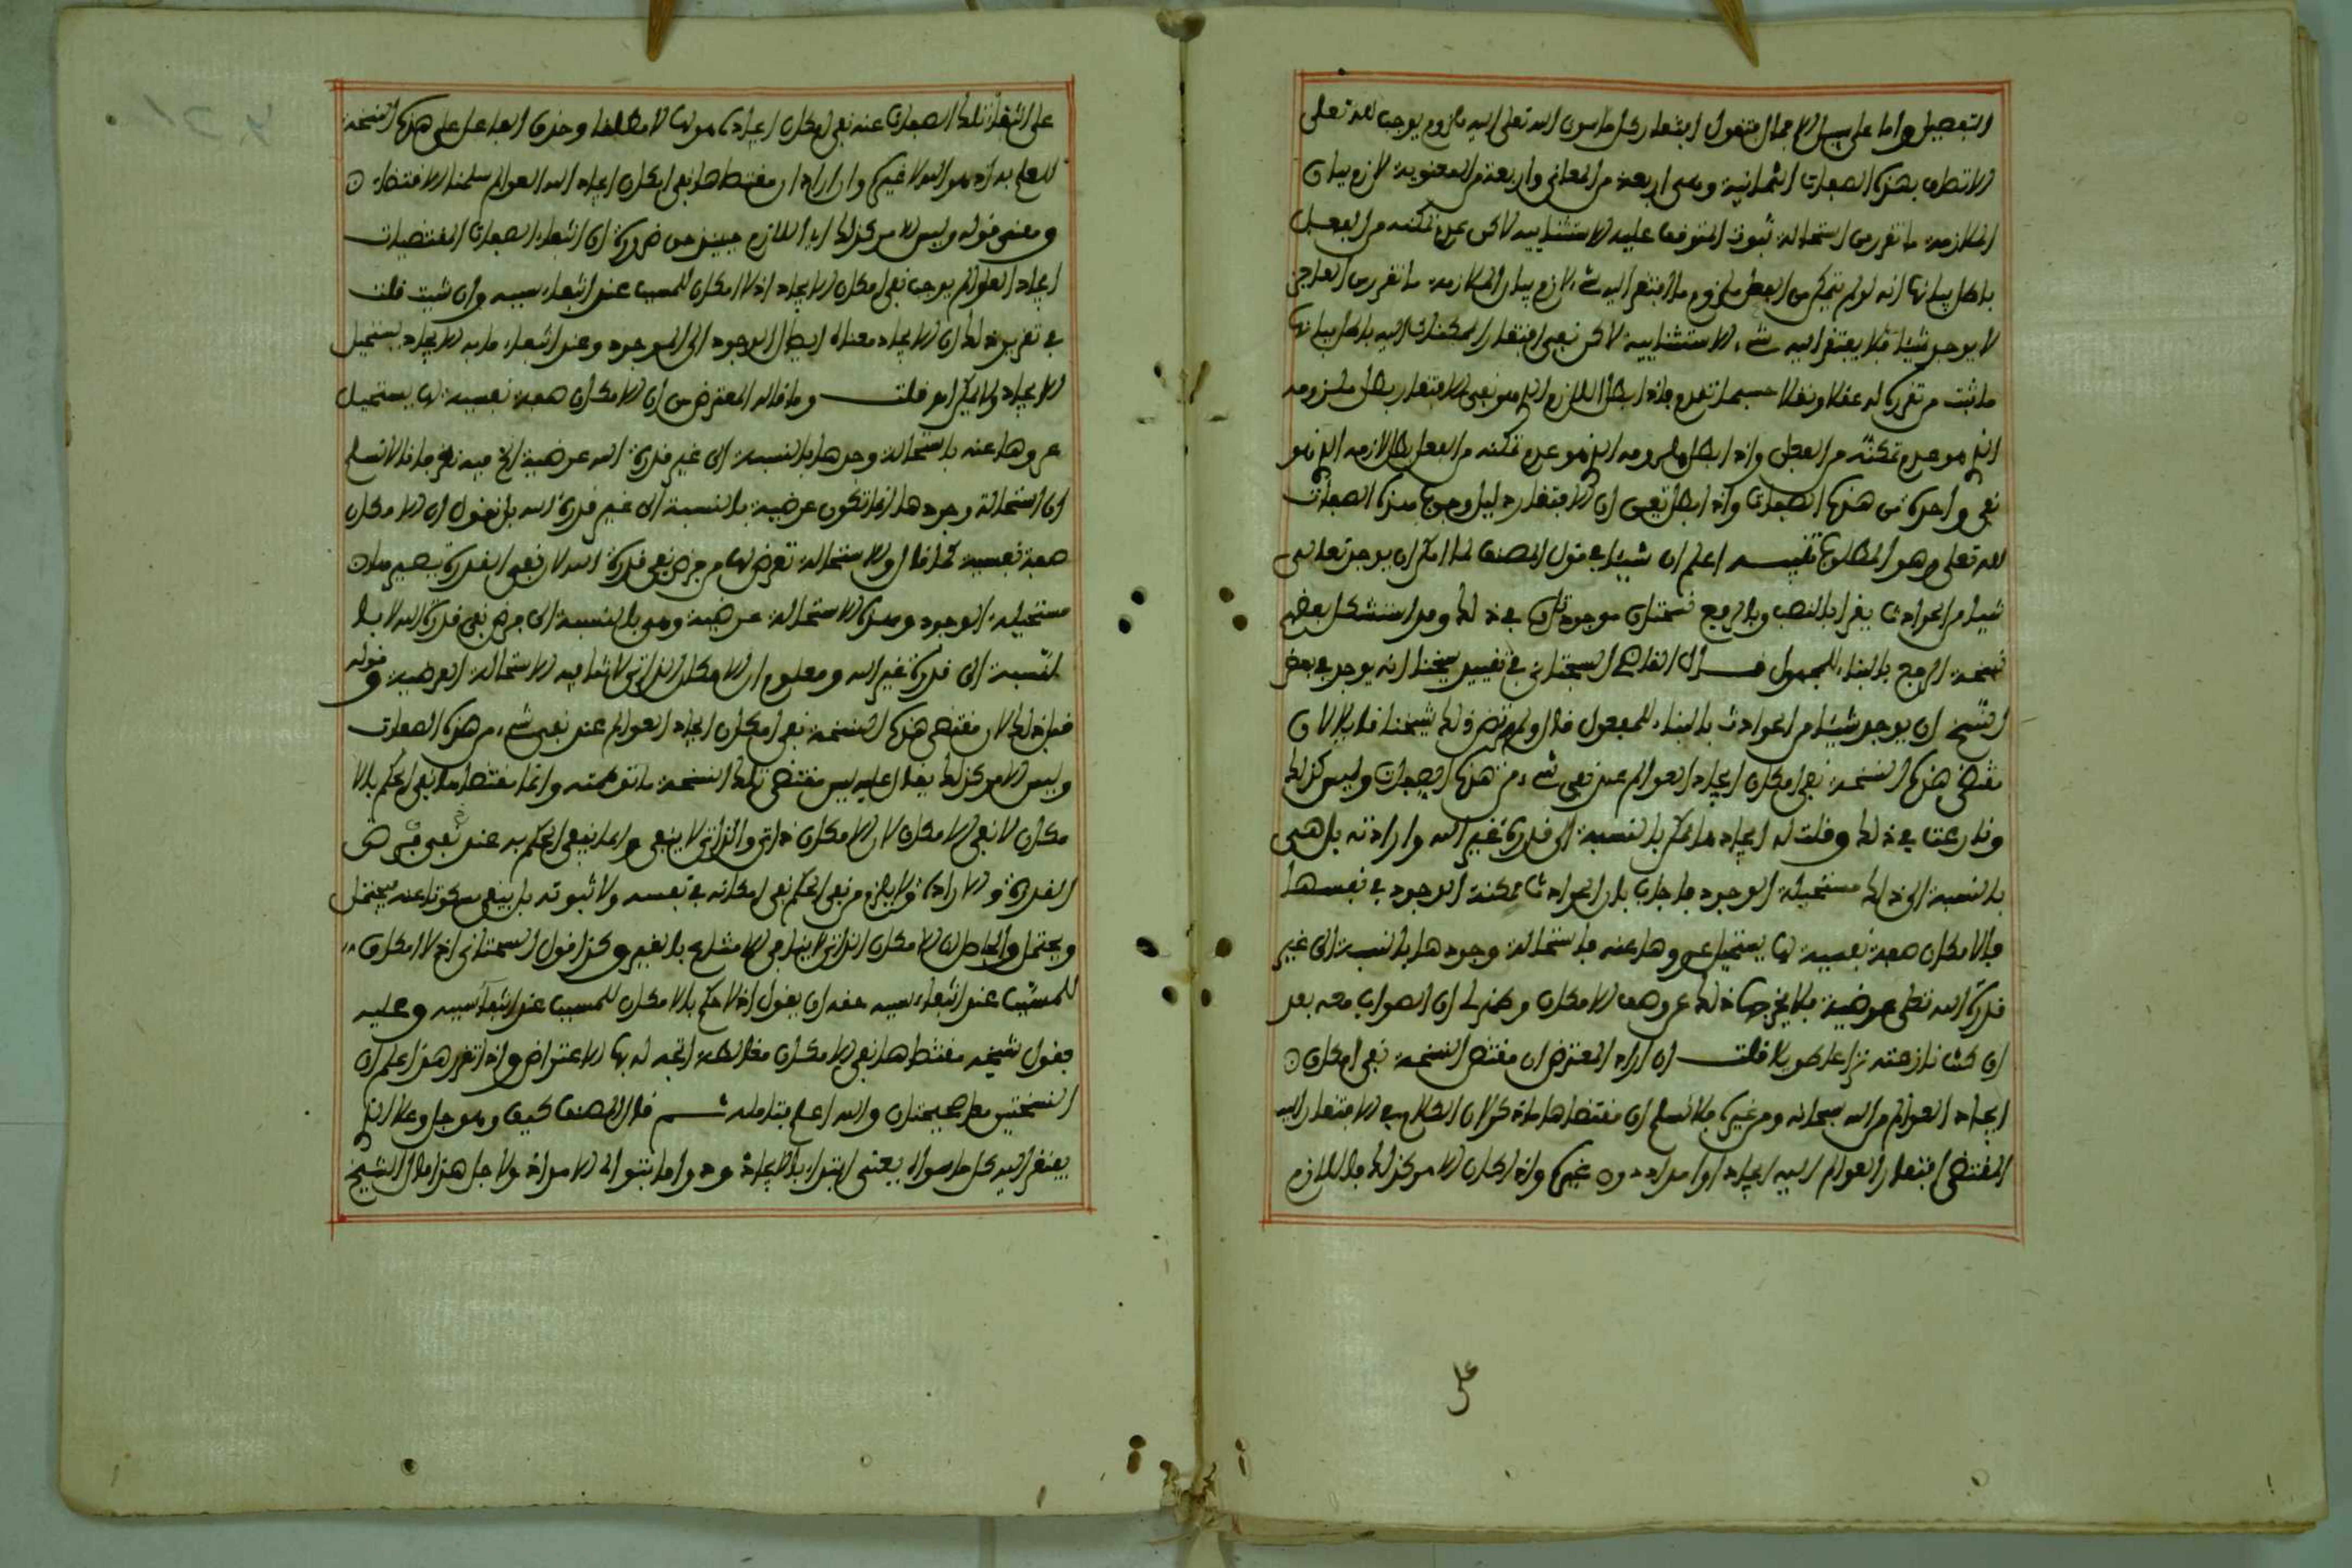 التفصيل واما على سبيل الاجمال فتقول افتقار كل ما سوى الله تعلى اليه ملزوم يوجب لله تعلى
الاتصاف بهذه الصفات الثمانية وهى اربعة من المعانى واربعة من المعنوية لازم بيان
الملازمة ما تقرر من استحالة ثبوت المتوقف عليه الاستثنايية لاكن عدم تمكنه من الفعل
باطل بيانها انه لو لم يتمكن من الفعل ملزوم ما افتقر اليه شىء لازم بيان الملازمة ما تقرر من العاجز
لا يوجد شيئا فلا يفتقر اليه شىء الاستثنايية لاكن نفى افتقار الممكنات اليه باطل بيانها
ما ثبت من تقريره له عقلا ونقلا حسبما تقدم فاذا بطل اللازم الذى هو نفى الافتقار بطل ملزومه
الذى هو عدم تمكنه من الفعل واذا بطل ملزومه الذى هو عدم تمكنه من الفعل بطل لازمه الذى هو
نفى واحدة من هذه الصفات واذا بطل تعين ان الافتقار دليل وجوب هذه الصفات
لله تعلى وهو المطلوب تنبيه اعلم ان شيئا فى قول المصنف لما امكن ان يوجد تعالى
شيئا من الحوادث يقرا بالنصب وبالرفع نسختان موجودتان فى ذلك وقد استشكل بعضهم
نسخة الرفع بالبناء للمجهول قال القاضى السجتانى فى تقييد شيخنا انه يوجد فى بعض
النسخ ان يوجد شيئا من الحوادث بالبناء للمفعول قال ولم يرتض ذلك شيخنا قايلا لان
مقتضى هذه النسخة نفى امكان ايجاد العوالم عند نفى شىء من هذه الصفات وليس كذلك
ونازعته فى ذلك وقلت له ايجاد ما امكن بالنسبة الى قدرة غير الله وارادته بل هى
بالنسبة الى ذلك مستحيلة الوجود فاجاب بان الحوادث ممكنة الوجود فى نفسها
فالامكان صفة نفسية لها يستحيل عروها عنه فاستحالة وجودها بالنسبة الى غير
قدرة الله تعلى عرضية فلا يخرجها ذلك عن وصف الامكان وظهر لى ان الصواب معه بعد
ان كنت نازعته نزاعا طويلا قلت ان اراد المعترض ان مقتضى النسخة نفى امكان
ايجاد العوالم من الله سبحانه ومن غيره فلا نسلم ان مقتضاها ما ذكر لان الكلام فى الافتقار اليه
المقتضى افتقار العوالم اليه ايجادا وامدادا دون غيره واذا كان الامر كذلك فاللازم
على
على انتفاء تلك الصفات عنه نفى امكان ايجاده هو لها لا مطلقا وحذف الفاعل على هذه النسخة
للعلم به اذ هو الله لا غيره وان اراد ان مقتضاها نفى امكان ايجاد الله العوالم سلمنا الاقتضاء
ومعنى قوله وليس الامر كذلك اى اللازم حينئذ من ضرورة ان انتفاء الصفات المقتضيات
ايجاد العوالم يوجب نفى امكان الايجاد اذ لا امكان للمسبب عند انتفاء سببه وان شيت قلت
فى تقرير ذلك ان الايجاد معناه ايصال الوجود الى الموجود وعند انتفاء ما به الايجاد يستحيل
الايجاد ولا يمكن امر قلت وما قاله المعترض من ان الامكان صفة نفسية لها يستحيل
عروها عنه باستحالة وجودها بالنسبة الى غير قدرة الله عرضية الخ فيه نظر فانا لا نسلم
ان استحالة وجودها انما تكون عرضية بالنسبة الى غير قدرة الله بل نقول ان الامكان
صفة نفسية كما قال والاستحالة تعرض لها من فرض نفى قدرة الله لان نفى القدرة يصير ملذن
مستحيلة الوجود وهذه الاستحالة عرضية وهو بالنسبة الى فرض نفى قدرة الله لا با
لنسبة الى قدرة غير الله ومعلوم ان الامكان الذاتى لا تنافيه الاستحالة العرضية وقوله
قبل ذلك لان مقتضى هذه النسخة نفى امكان ايجاد العوالم عند نفى شىء من هذه الصفات
وليس الامر كذلك يقال عليه ليس مقتضى تلك النسخة ما توهمته وانما مقتضاها نفى الحكم بالا
مكان لا نفى الامكان لان الامكان ذاتى والذاتى لا ينفى وانما ينفى الحكم به عند نفى
القدرة والارادة ولا يلزم من نفى الحكم نفى امكانه فى نفسه ولا ثبوته بل يبقى مسكوتا عنه فيحتمل
ويحتمل والحاصل ان الامكان الذاتى لا ينافى الامتناع بالغير وكذا قول السجتانى اذ لا امكان
للمسبب عند انتفاء سببه حقه ان يقول اذ لا حكم بالامكان للمسبب عند انتفاء سببه وعليه
فقول شيخه مقتضاها نفى الامكان مغالطة اتجه له بها الاعتراض واذا تقرر هذا اعلم ان
النسختين صحيحتان والله اعلم فتامله ثم قال المصنف كيف وهو جل وعلا الذى
يفتقر اليه كل ما سواه يعنى ابتداء بالايجاد ودواما بتوالى الامداد ولاجل هذا قال الشيخ